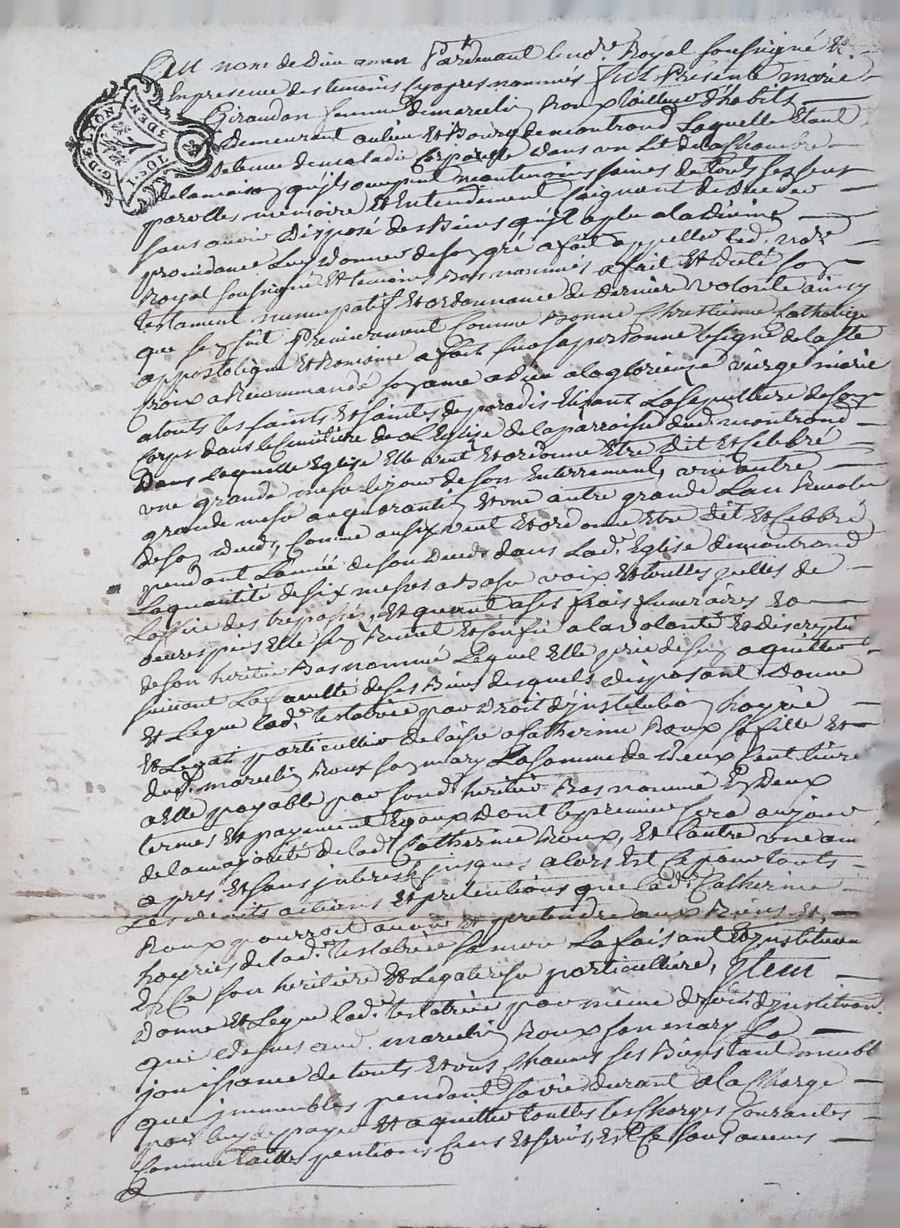 Au nom de Dieu amen Pardevant le no.re Royal soussigné &
En presence des temoins cy apres nommés fut Presente marie
Giraudon femme de marcelin Roux tailleur d'habits
Demeurant au lieu et Bourg de montrond Laquelle Etant
detenue de maladie Corporelle dans un Lit de la Chambre
de la maison qu'ils occupent neantmoins saine de touts ses sens
parolles memoire Et Entendement Craignant de deceder
sans avoir Disposé des Biens qu'il a plu a la Divine
providance Luy Donner de son gré a fait appeller led. no.re
Royal soussigné Et temoins Bas nommés a fait Et dicté son
testament nuncupatif Et ordonnance de Dernier volonté ainsy
que sen suit Premierement Comme Bonne Chrestienne Catholique
appostolique Et Romaine a fait sur sa personne le signe de la Ste
Croix a Recommandé son ame a Dieu a la glorieuse vierge marie
a touts les saints Et saintes de paradis Elisant La sepulture de son
corps dans le Cimitiere de L'Eglise de la parroisse dud. montrond
Dans Laquelle Eglise Elle veut Et ordonne Etre Dit Et Celebré
une grande messe le jour de son Enterrement, une autre
grande messe a quarantin Et une autre grande L'an Revolu
de son deceds, Comme aussy veut Et ordonne Etre dit Et Celebré
pendant L'année de son deceds dans Lad.e Eglise de montrond
La quantité de six messes a Basse voix Et toutes jcelles de
L'office des trepassés, Et quant a ses frais funeraires Et
oeuvres pies Elle sen Remet Et Confie a la volonté Et discreption
de son heritier Bas nommé Lequel Elle prie de sen aquitter
suivant La faculté de ses Biens desquels disposant Donne
Et Legue lad.e testatrice par Droit d'jnstitution hoyrie
Et Legat particullier delaisse a Catherine Roux sa fille Et
dud. marcelin Roux son mary La somme de Deux Cent livre
a Elle payable par sond. heritier Bas nommé En Deux
termes Et payement Egaux dont le premier sera au jour
de la majorité de lad. Catherine Roux, Et L'autre une an
apres Et sans jnterest jusques alors Et Ce pour touts
Les droits actions Et pretentions que lad.e Catherine
Roux pourroit avoir Et pretendre aux Biens Et
hoyries de lad.e testatrice sa mere La faisant Et jnstituant
En Ce son heritiere Et Legataire particulliere, Jtem
Donne Et Legue lad.e testatrice par même droit d'jnstitution
que dessus aud. marcelin Roux son mary La
jouissance de touts Et uns Chacuns ses Biens tant meubles
que jmmeubles pendant sa vie durant a la Charge
par luy de payer Et aquitter toutes les Charges Courantes
Comme tailles pentions Cens Et servis, Et Ce sans aucuns
G. DE LYON
3 DEN.